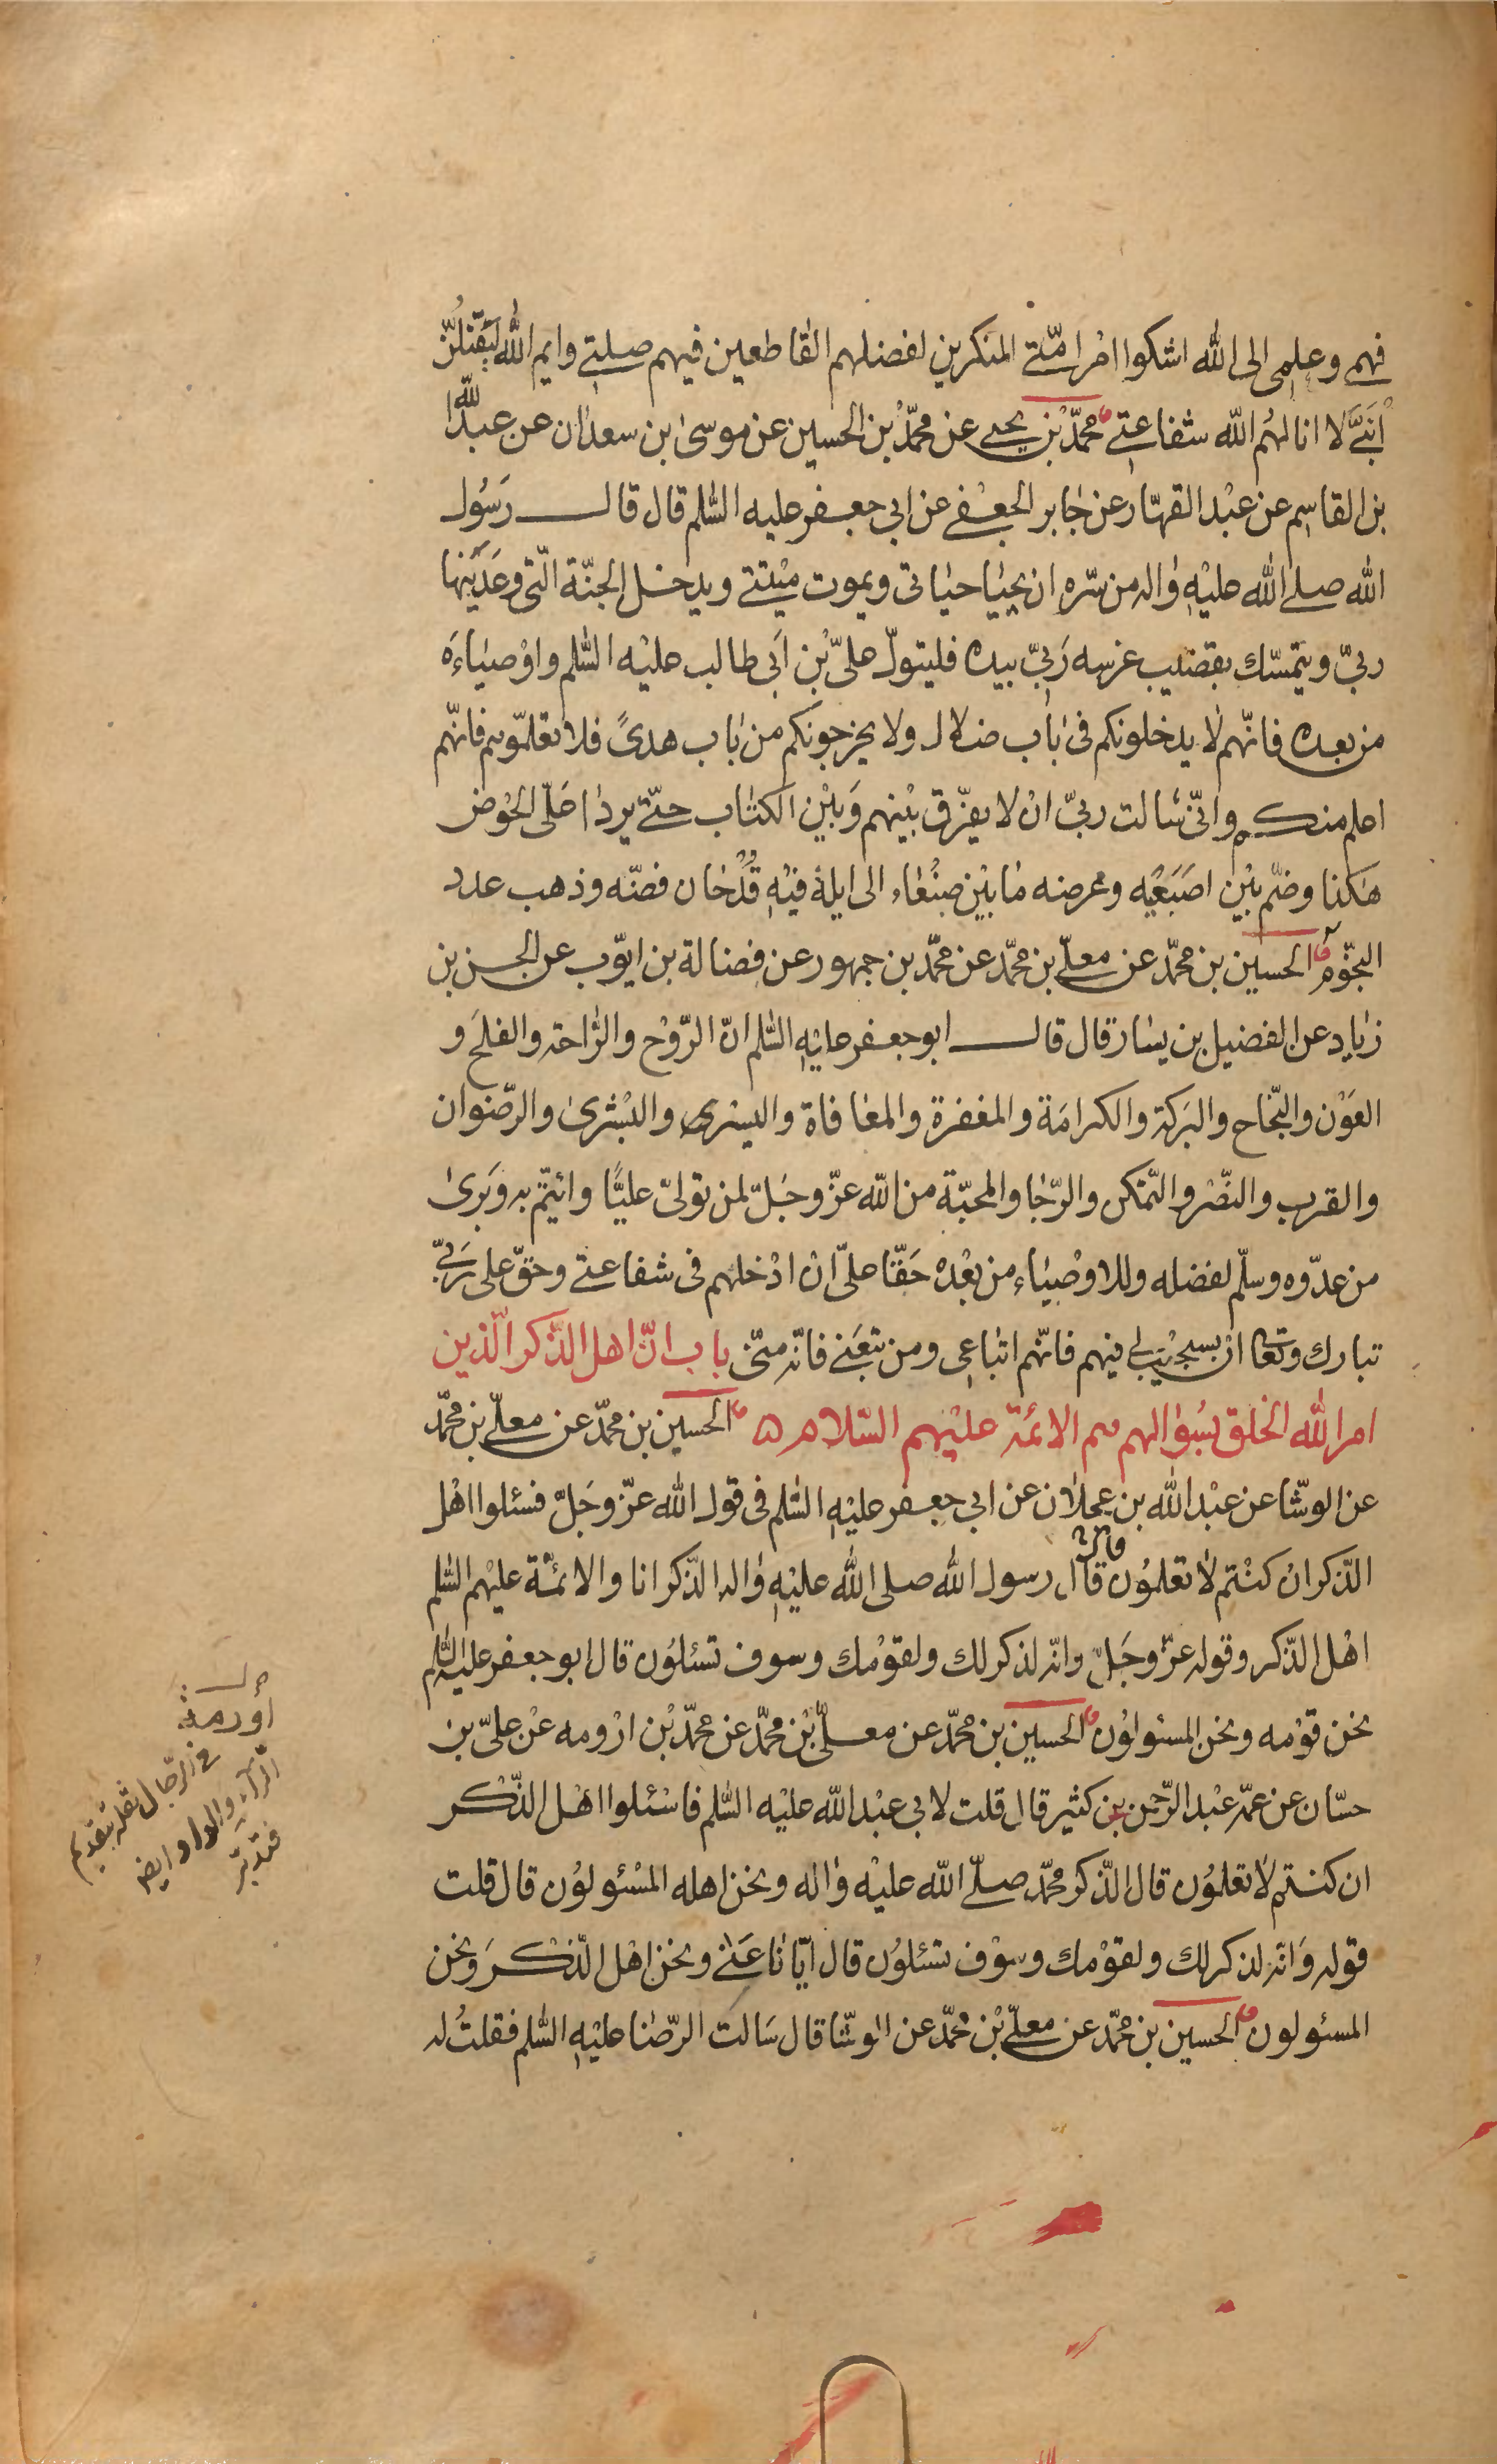 فهمي وعلمي الى الله اشكوا امرا متي المنكرين لفضلهم القاطعين فيهم صلتي وايم الله ليقتلنّ
ابني لا انالهم الله شفاعتي محمّد بن يحيى عن محمّد بن الحسين عن موسى بن سعدان عن عبد الله
بن القاسم عن عبد القهّار عن جابر الجعفي عن ابي جعفر عليه السّلم قال قال رسول
الله صلى الله عليه واله من سرّه ان يحيا حياتي ويموت ميتتي ويدخل الجنّة الّتي وعدنيها
ربّي ويتمسّك بقضيب غرسه ربّي بيده فليتولّ عليّ بن ابي طالب عليه السّلم واوصياءه
من بعده فانّهم لا يدخلونكم في باب ضلال ولا يخرجونكم من باب هدىً فلا تعلّموهم فانّهم
اعلم منكم وانّي سالت ربّي ان لا يفرّق بينهم وبين الكتاب حتّى يردا علىّ الحوض
هكذا وضمّ بين اصبعيه وعرضه ما بين صنعاء الى ايلة فيه قدحان فضّه وذهب عدد
النجوم الحسين بن محمّد عن معلّى بن محمّد عن محمّد بن جمهور عن فضالة بن ايّوب عن الحسن بن
زياد عن الفضيل بن يسار قال قال ابو جعفر عليه السّلم انّ الرّوح والرّاحة والفلح و
العون والنّجاح والبركة والكرامة والمغفرة والمعافاة واليسرى والبشرى والرّضوان
والقرب والنّصر والتّمكن والرّجا والمحبّة من الله عزّ وجلّ لمن تولّى عليًّا وائتمّ به وبرئ
من عدّوه وسلّم لفضله وللاوصياء من بعده حقّا علىّ ان ادخلهم في شفاعتي وحقّ على ربّي
تبارك وتعا ان يستجيب لي فيهم فانّهم اتباعي ومن تبعني فانّه منّي باب انّ اهل الذّكر الّذين
امر الله الخلق بسؤالهم هم الائمّة عليهم السّلام ۵ الحسين بن محمّد عن معلّى بن محمّد
عن الوشّا عن عبد الله بن عجلان عن ابي جعفر عليه السّلم في قول الله عزّ وجلّ فسئلوا اهل
الذّكر ان كنتم لا تعلمون قال قال رسول الله صلى الله عليه واله الذّكر انا والائمّة عليهم السّلم
اهل الذّكر وقوله عزّ وجلّ وانّه لذكر لك ولقومك وسوف تسئلون قال ابو جعفر عليه السّلم
نحن قومه ونحن المسئولون الحسين بن محمّد عن معلّى بن محمّد عن محمّد بن ارومه عن علىّ بن
حسّان عن عمّه عبد الرّحمن بن كثير قال قلت لابي عبد الله عليه السّلم فاسئلوا اهل الذّكر
ان كنتم لا تعلمون قال الذّكر محمّد صلّى الله عليه واله ونحن اهله المسئولون قال قلت
قوله وانّه لذكر لك ولقومك وسوف تسئلون قال ايّانا عنى ونحن اهل الذّكر ونحن
المسئولون الحسين بن محمّد عن معلّى بن محمّد عن الوشّا قال سالت الرّضا عليه السّلم فقلت له
اورمة
في الرّجال بتقديم
الرّاء والواو ايض
فتدبّر